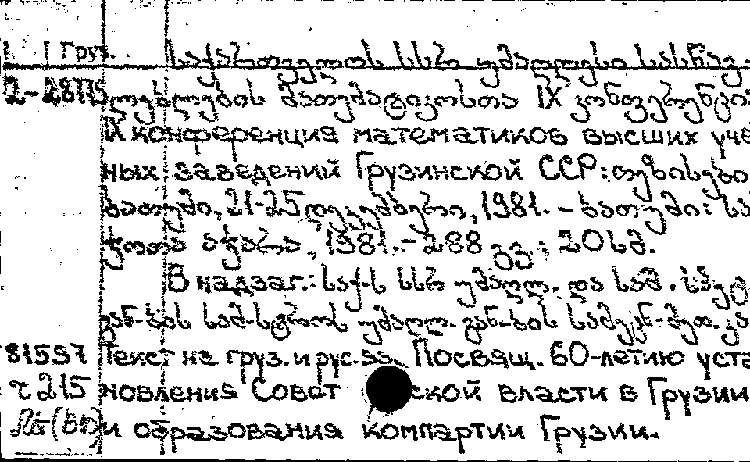 1 Груз. საქართველოს სსრ უმაღლესი სასწავ-
2-28775 ლებლების მათემატიკოსთა IX კონფერენცია
IX конференция математиков высших уче
ных заведений Грузинской ССР: თეზისები
ბათუმი, 21-25 დეკემბერი, 1981. - ბათუმი: საბ
ჭოთა აჭარა, 1981. - 288 გვ.; 20 სმ.
В надзаг.: საქ-ს სსრ უმაღლ. და საშ.
81597 Текст на груз. и рус. яз. Посвящ. 60-летию уста
ч 215 новления Совет ской власти в Грузии
и образования компартии Грузии.